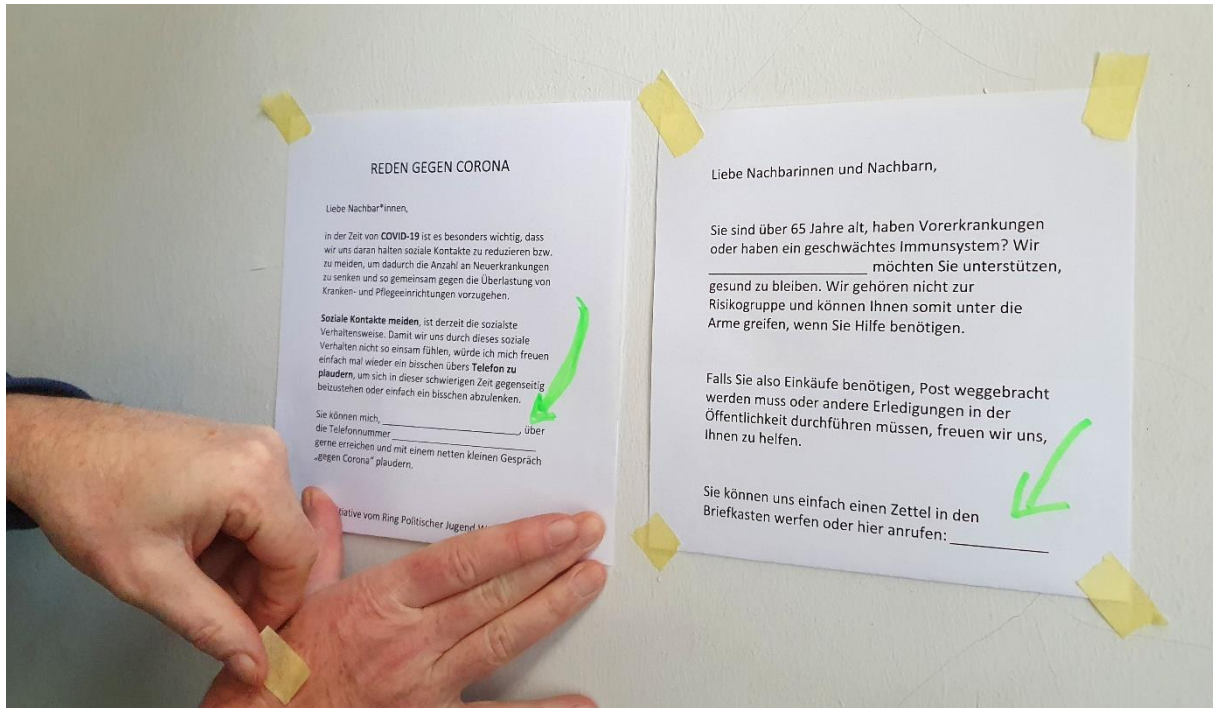 REDEN GEGEN CORONA
Liebe Nachbar*innen,
in der Zeit von COVID-19 ist es besonders wichtig, dass
wir uns daran halten soziale Kontakte zu reduzieren bzw.
zu meiden, um dadurch die Anzahl an Neuerkrankungen
zu senken und so gemeinsam gegen die Überlastung von
Kranken- und Pflegeeinrichtungen vorzugehen.
Soziale Kontakte meiden, ist derzeit die sozialste
Verhaltensweise. Damit wir uns durch dieses soziale
Verhalten nicht so einsam fühlen, würde ich mich freuen
einfach mal wieder ein bisschen übers Telefon zu
plaudern, um sich in dieser schwierigen Zeit gegenseitig
beizustehen oder einfach ein bisschen abzulenken.
Sie können mich, ____________________, über
die Telefonnummer ____________________
gerne erreichen und mit einem netten kleinen Gespräch
„gegen Corona" plaudern.
vom Ring Politischer Jugend
Liebe Nachbarinnen und Nachbarn,
Sie sind über 65 Jahre alt, haben Vorerkrankungen
oder haben ein geschwächtes Immunsystem? Wir
____________________ möchten Sie unterstützen,
gesund zu bleiben. Wir gehören nicht zur
Risikogruppe und können Ihnen somit unter die
Arme greifen, wenn Sie Hilfe benötigen.
Falls Sie also Einkäufe benötigen, Post weggebracht
werden muss oder andere Erledigungen in der
Öffentlichkeit durchführen müssen, freuen wir uns,
Ihnen zu helfen.
Sie können uns einfach einen Zettel in den
Briefkasten werfen oder hier anrufen: ____________